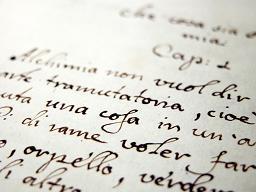 che cosa sia
mia.
Cap: 1
Alchimia non vuol dir
arte tramutatoria, cioè
uta una cosa in un'a
di rame voler far
, orpello, verder
di altra